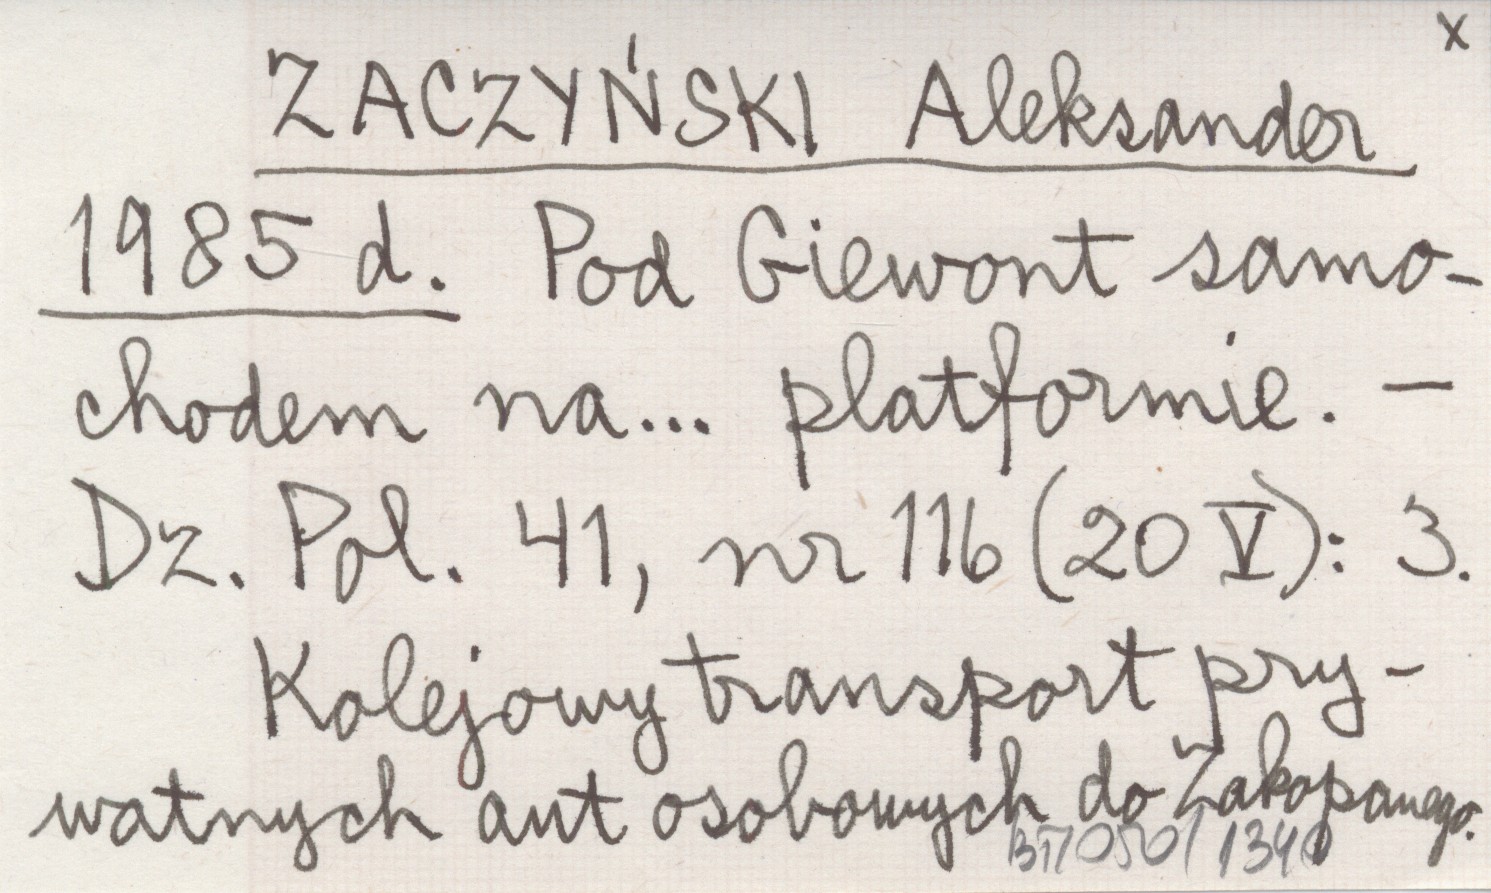 x
ZACZYŃSKI Aleksander
1985 d. Pod Giewont samo-
chodem na... platformie. —
Dz. Pol. 41, nr 116 (20 V): 3.
Kolejowy transport pry-
watnych aut osobowych do Zakopanego.